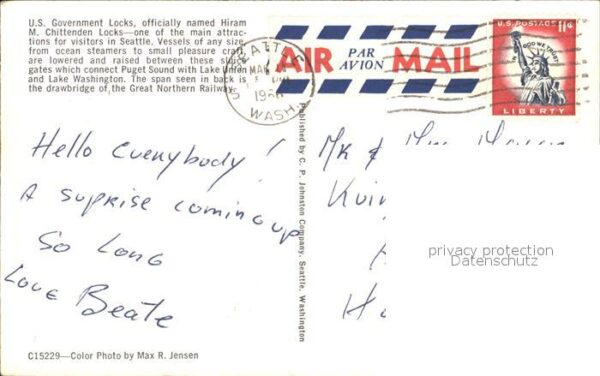 U.S. Government Locks, officially named Hiram
M. Chittenden Locks—one of the main attrac-
tions for visitors in Seattle. Vessels of any size,
from ocean steamers to small pleasure craft,
are lowered and raised between these sluice
gates which connect Puget Sound with Lake Union
and Lake Washington. The span seen in back is
the drawbridge of the Great Northern Railway.
SEATTLE
WASH.
AIR PAR AVION MAIL
U.S. POSTAGE 11¢
IN GOD WE TRUST
LIBERTY
Hello Everybody!
A suprise coming up
So Long
Love Beate
Published by C. P. Johnston Company, Seattle, Washington
Mr &
privacy protection
Datenschutz
C15229—Color Photo by Max R. Jensen